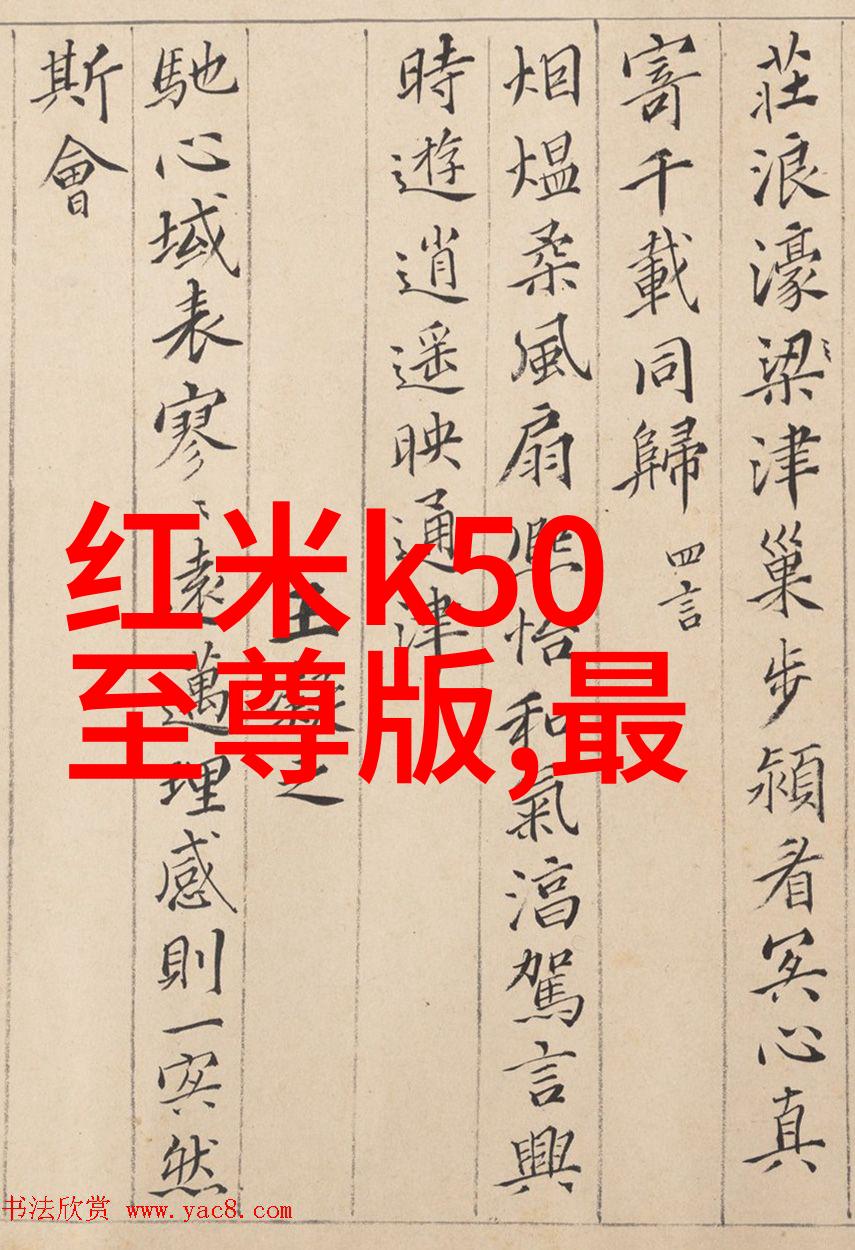 莊浪濠梁津巢步潁看冥心真
寄千載同歸 四言
烟熅柔風扇熙怡和氣淳駕言興
時遊逍遥映通津
王凝之
馳心域表寥〻遠邁理感則一冥然
斯會
红米k50
至尊版,最
书法欣赏 www.yac8.com